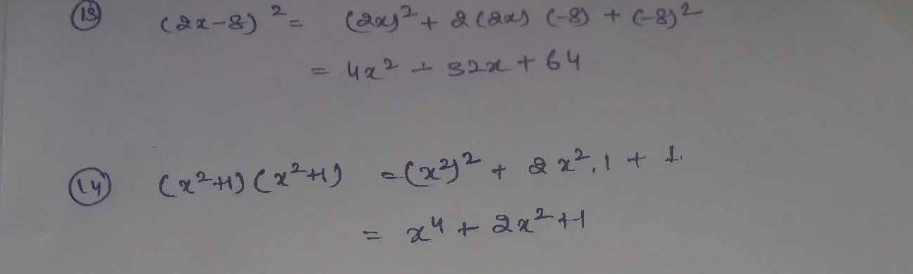 (13) (2x-8)² = (2x)² + 2(2x) (-8) + (-8)²
= 4x² - 32x + 64
(14) (x²+1) (x²+1) = (x²)² + 2x².1 + 1.
= x⁴ + 2x² + 1